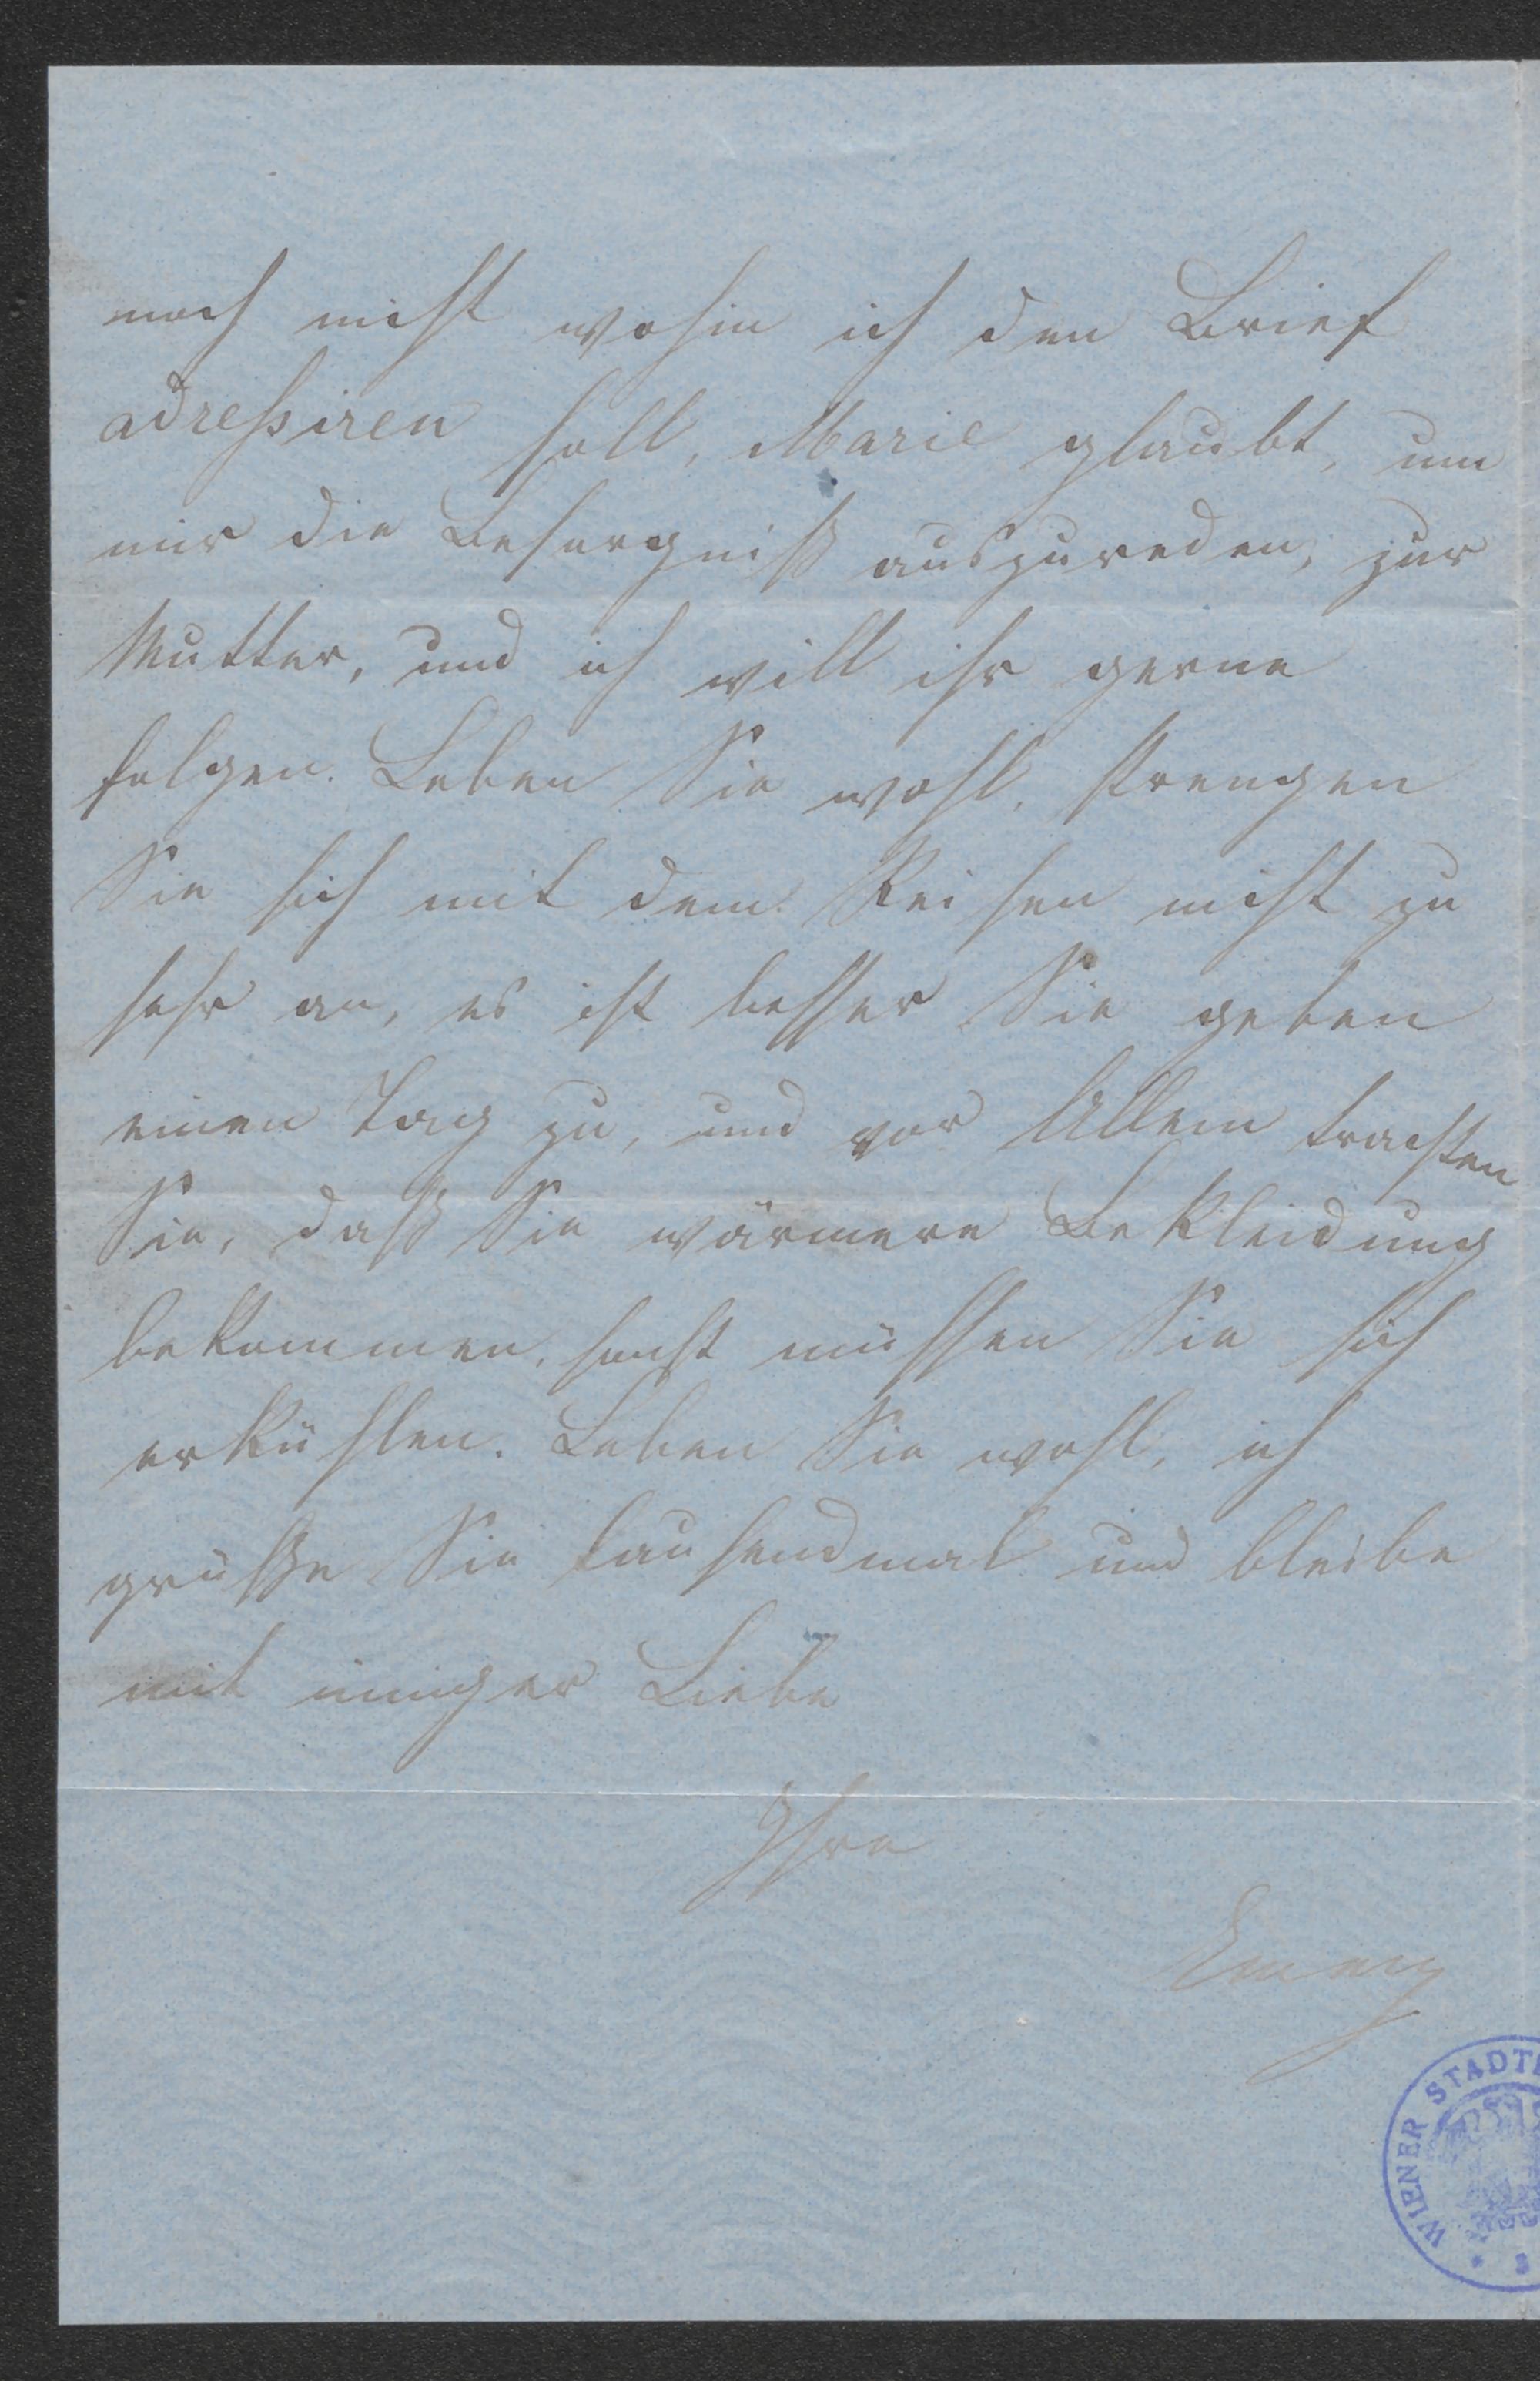 noch nicht wohin ich den Brief
adreßiren soll, Marie glaubt, um
mir die Besorgniß auszureden, zur
Mutter, und ich will ihr gerne
folgen. Leben Sie wohl, strengen
Sie sich mit dem Reisen nicht zu
sehr an, es ist besser Sie geben
einen Tag zu, und vor Allem trachten
Sie, daß Sie wärmere Bekleidung
bekommen, sonst müssen Sie sich
erkühlen. Leben Sie wohl, ich
grüße Sie tausendmal und bleibe
mit inniger Liebe
Ihre
WIENER STADT